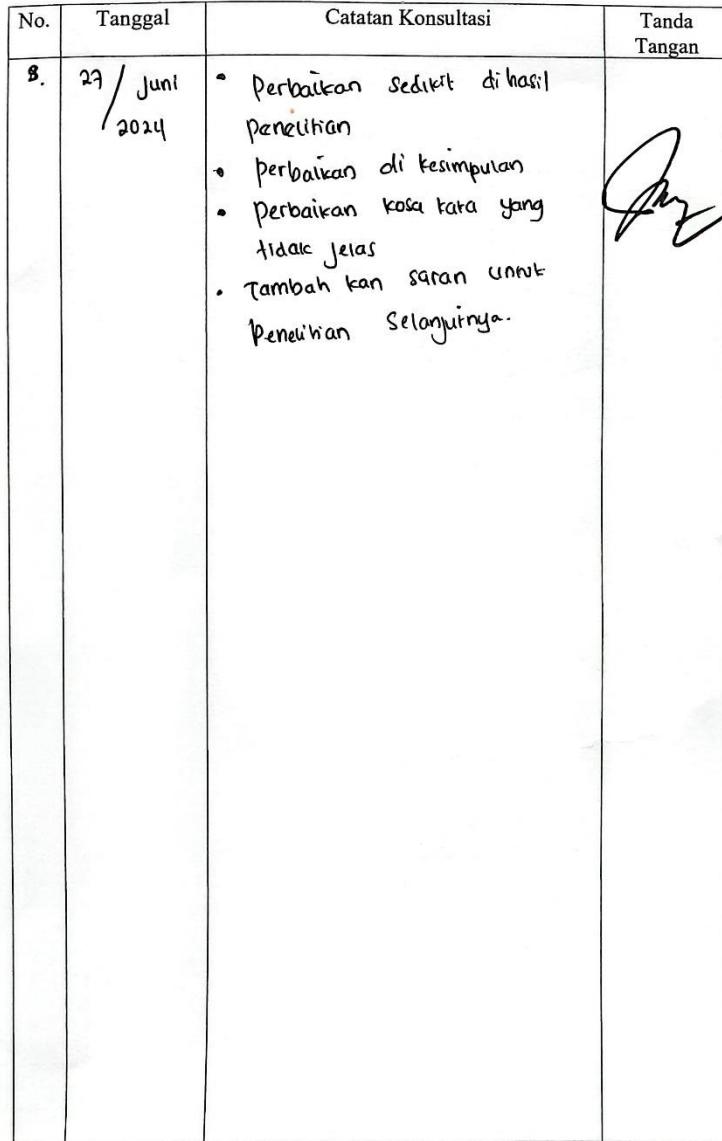 No. Tanggal Catatan Konsultasi Tanda
Tangan
8. 27/Juni • Perbaikan sedikit di hasil
2024 penelitian
• Perbaikan di kesimpulan
• Perbaikan kosa kata yang
tidak jelas
• Tambah kan saran untuk
Penelitian Selanjutnya.